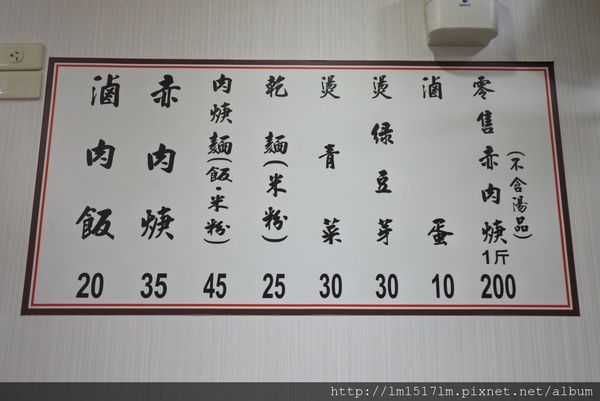 零售赤肉焿1斤(不含湯品) 200
滷蛋 10
燙綠豆芽 30
燙青菜 30
乾麵(米粉) 25
肉焿麵(飯·米粉) 45
赤肉焿 35
滷肉飯 20
http://lm1517lm.pixnet.net/album